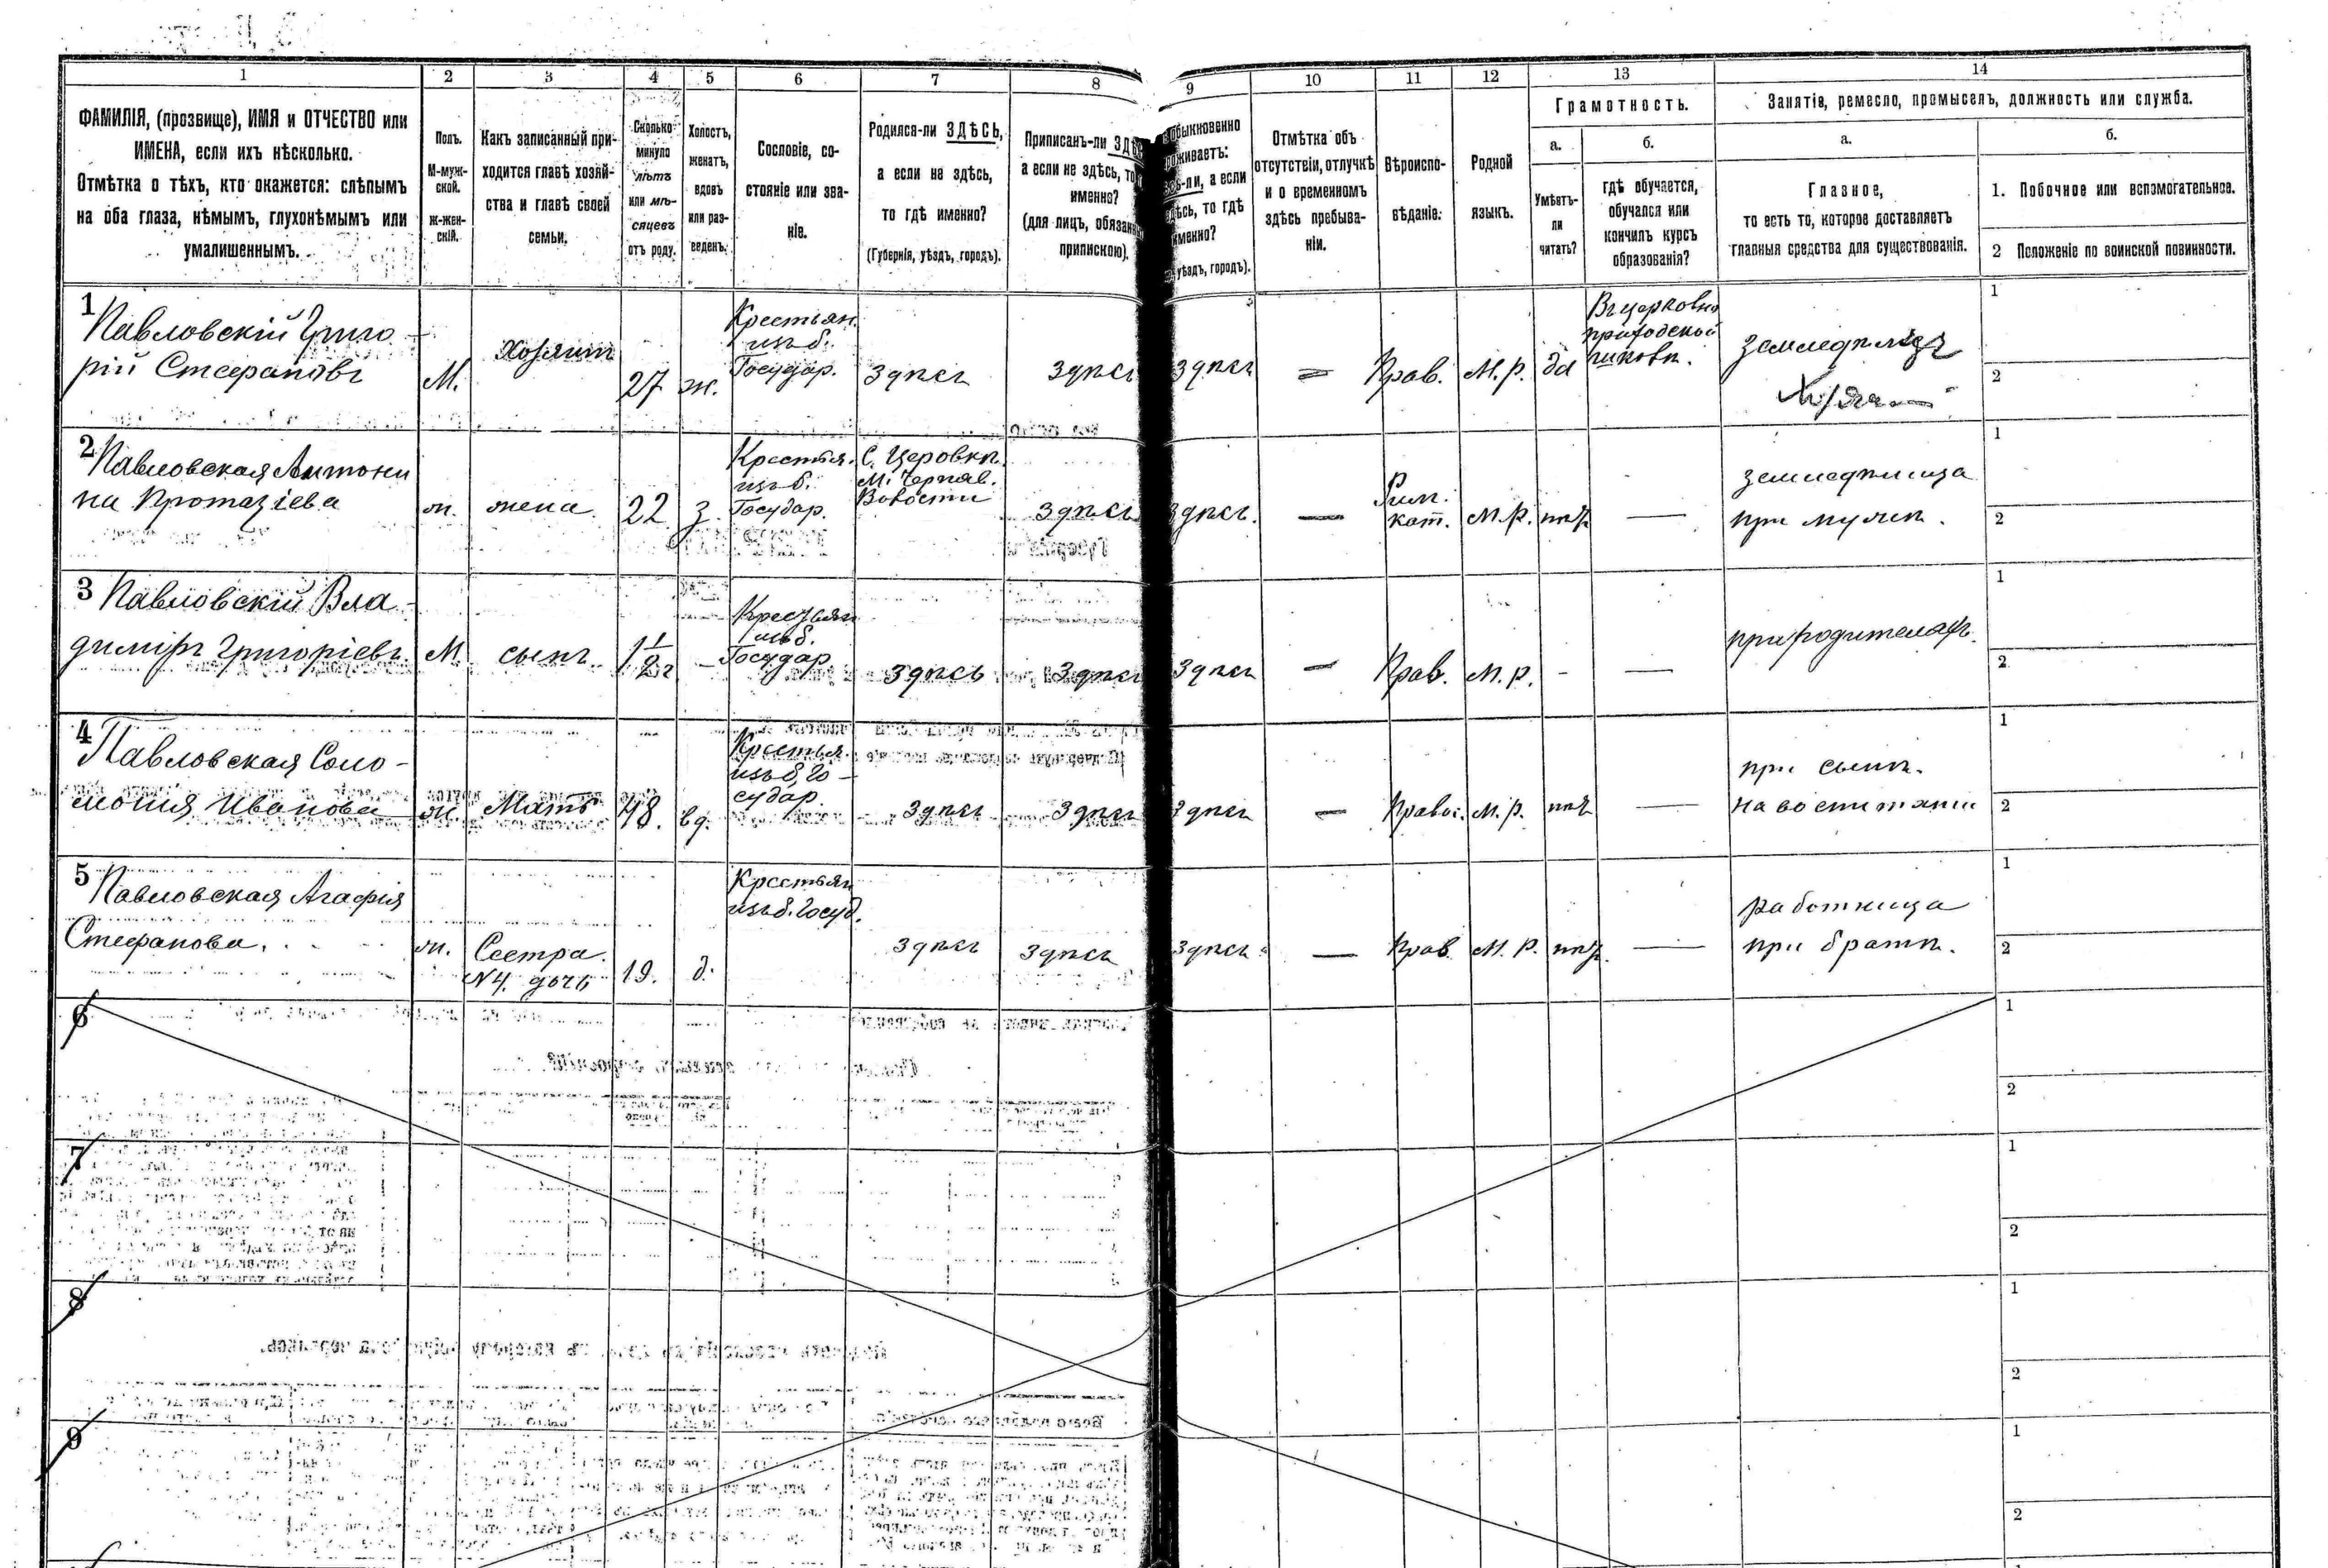 1 2 3 4 5 6 7 8 9 10 11 12 13 14
ФАМИЛІЯ, (прозвище), ИМЯ и ОТЧЕСТВО или
ИМЕНА, если ихъ нѣсколько.
Отмѣтка о тѣхъ, кто окажется: слѣпымъ
на оба глаза, нѣмымъ, глухонѣмымъ или
умалишеннымъ.
Полъ.
М-муж-
ской.
ж-жен-
скій.
Какъ записанный при-
ходится главѣ хозяй-
ства и главѣ своей
семьи.
Сколько
минуло
лѣтъ
или мѣ-
сяцевъ
отъ роду.
Холостъ,
женатъ,
вдовъ
или раз-
веденъ.
Сословіе, со-
стояніе или зва-
ніе.
Родился-ли ЗДѢСЬ,
а если не здѣсь,
то гдѣ именно?
(Губернія, уѣздъ, городъ).
Приписанъ-ли
а если не здѣсь,
именно?
(для лицъ,
припискою).
а если
то гдѣ
уѣздъ, городъ).
Отмѣтка объ
отсутствіи, отлучкѣ
и о временномъ
здѣсь пребыва-
ніи.
Вѣроиспо-
вѣданіе.
Родной
языкъ.
Грамотность.
а.
Умѣетъ-
ли
читать?
б.
гдѣ обучается,
обучался или
кончилъ курсъ
образованія?
Занятіе, ремесло, промыселъ, должность или служба.
а.
Главное,
то есть то, которое доставляетъ
главныя средства для существованія.
б.
1. Побочное или вспомогательное.
2 Положеніе по воинской повинности.
1
Павловскій Григо-
рій Стефановъ
М.
Хозяинъ
27
ж.
Крестьян.
изъ б.
Государ.
здѣсь
здѣсь
здѣсь
=
Прав.
М.р.
да
Въ церковно
приходской
школѣ.
земледѣлецъ
Хозя
1
2
2
Павловская Антони
на Протазіева
ж.
жена
22
з.
Крестья.
изъ б.
Государ.
С. Церовка
М. Черняв.
Волости
здѣсь
здѣсь.
—
Рим.
кат.
М.р.
нѣт
—
земледѣлица
при мужѣ.
1
2
3
Павловскій Вла-
димiръ Григоріевъ
М.
сынъ
1 1/2 г
—
Крестьян
изъ б.
Государ
здѣсь
здѣсь
здѣсь
—
Прав.
М.р.
-
—
при родителяхъ.
1
2
4
Павловская Соло-
монія Иванова
ж.
Мать
48.
вд.
Крестья.
изъ б. го-
судар.
здѣсь
здѣсь
здѣсь
—
Правос.
М.р.
нѣт
—
при сынѣ.
на воспитаніи
1
2
5
Павловская Агафія
Стефанова.
ж.
Сестра.
N4. дочь
19.
д.
Крестьян
изъ б. Госуд.
здѣсь
здѣсь
здѣсь
—
Прав
М.Р.
нѣт.
—
работница
при братѣ.
1
2
6
1
2
7
1
2
8
1
2
9
1
2